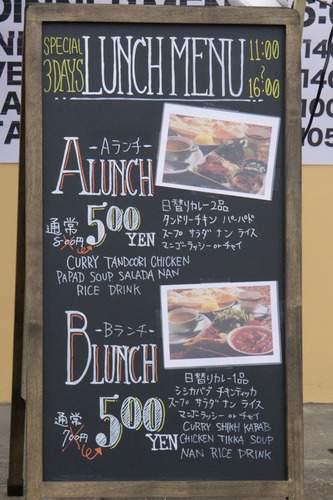 SPECIAL
3DAYS
LUNCH MENU
11:00
~
16:00
-Aランチ-
A LUNCH
通常
800円
500
YEN
日替りカレー2品
タンドリーチキン パーパド
スープ サラダ ナン ライス
マンゴーラッシー or チャイ
CURRY TANDOORI CHICKEN
PAPAD SOUP SALADA NAN
RICE DRINK
-Bランチ-
B LUNCH
通常
700円
500
YEN
日替りカレー1品
シシカバブ チキンティッカ
スープ サラダ ナン ライス
マンゴーラッシー or チャイ
CURRY SHIKH KABAB
CHICKEN TIKKA SOUP
NAN RICE DRINK